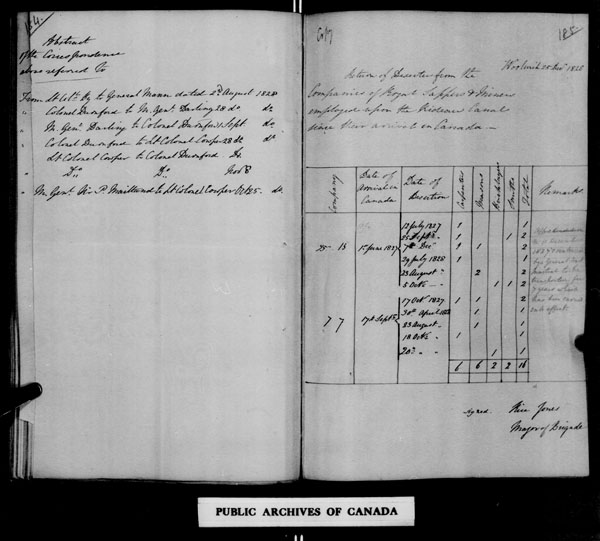 184.
Abstract
of the Correspondence
above referred to
From Lt Col. By to General Mann dated 2d August 1828
" Colonel Durnford to M. Genl. Darling 28 do do
" M. Genl. Darling to Colonel Durnford 1 Sept do
" Colonel Durnford to Lt Colonel Cowper 28 do
" Lt Colonel Cowper to Colonel Durnford do
" Do Do
" M. Genl. Sir P. Maitland to Lt Colonel Cowper Oct 25. do.
Copy
185
Woolwich 25 1828
Return of Deserters from the
Companies of Royal Sappers & Miners
employed upon the Rideau Canal
since their arrival in Canada —
Company
Date of arrival in Canada
Date of Desertion
Carpenters
Masons
Smiths
Total
Remarks
12 July 1827 1 1
25 Sept. " 1 1 2
25 - 15 1st June 1827 7th Decr " 1 1 2
29 July 1828 1 1
23 August " 2 2
5 Octr - " 1 1 2
17 Octr 1827 1 1 2
30th April 1828 1 1
7 7 17th Sept 23 August " 1 1
18 Octr " 1 1
20th " " 1 1
6 6 2 2 16
Signed Rice Jones
Major of Brigade
PUBLIC ARCHIVES OF CANADA